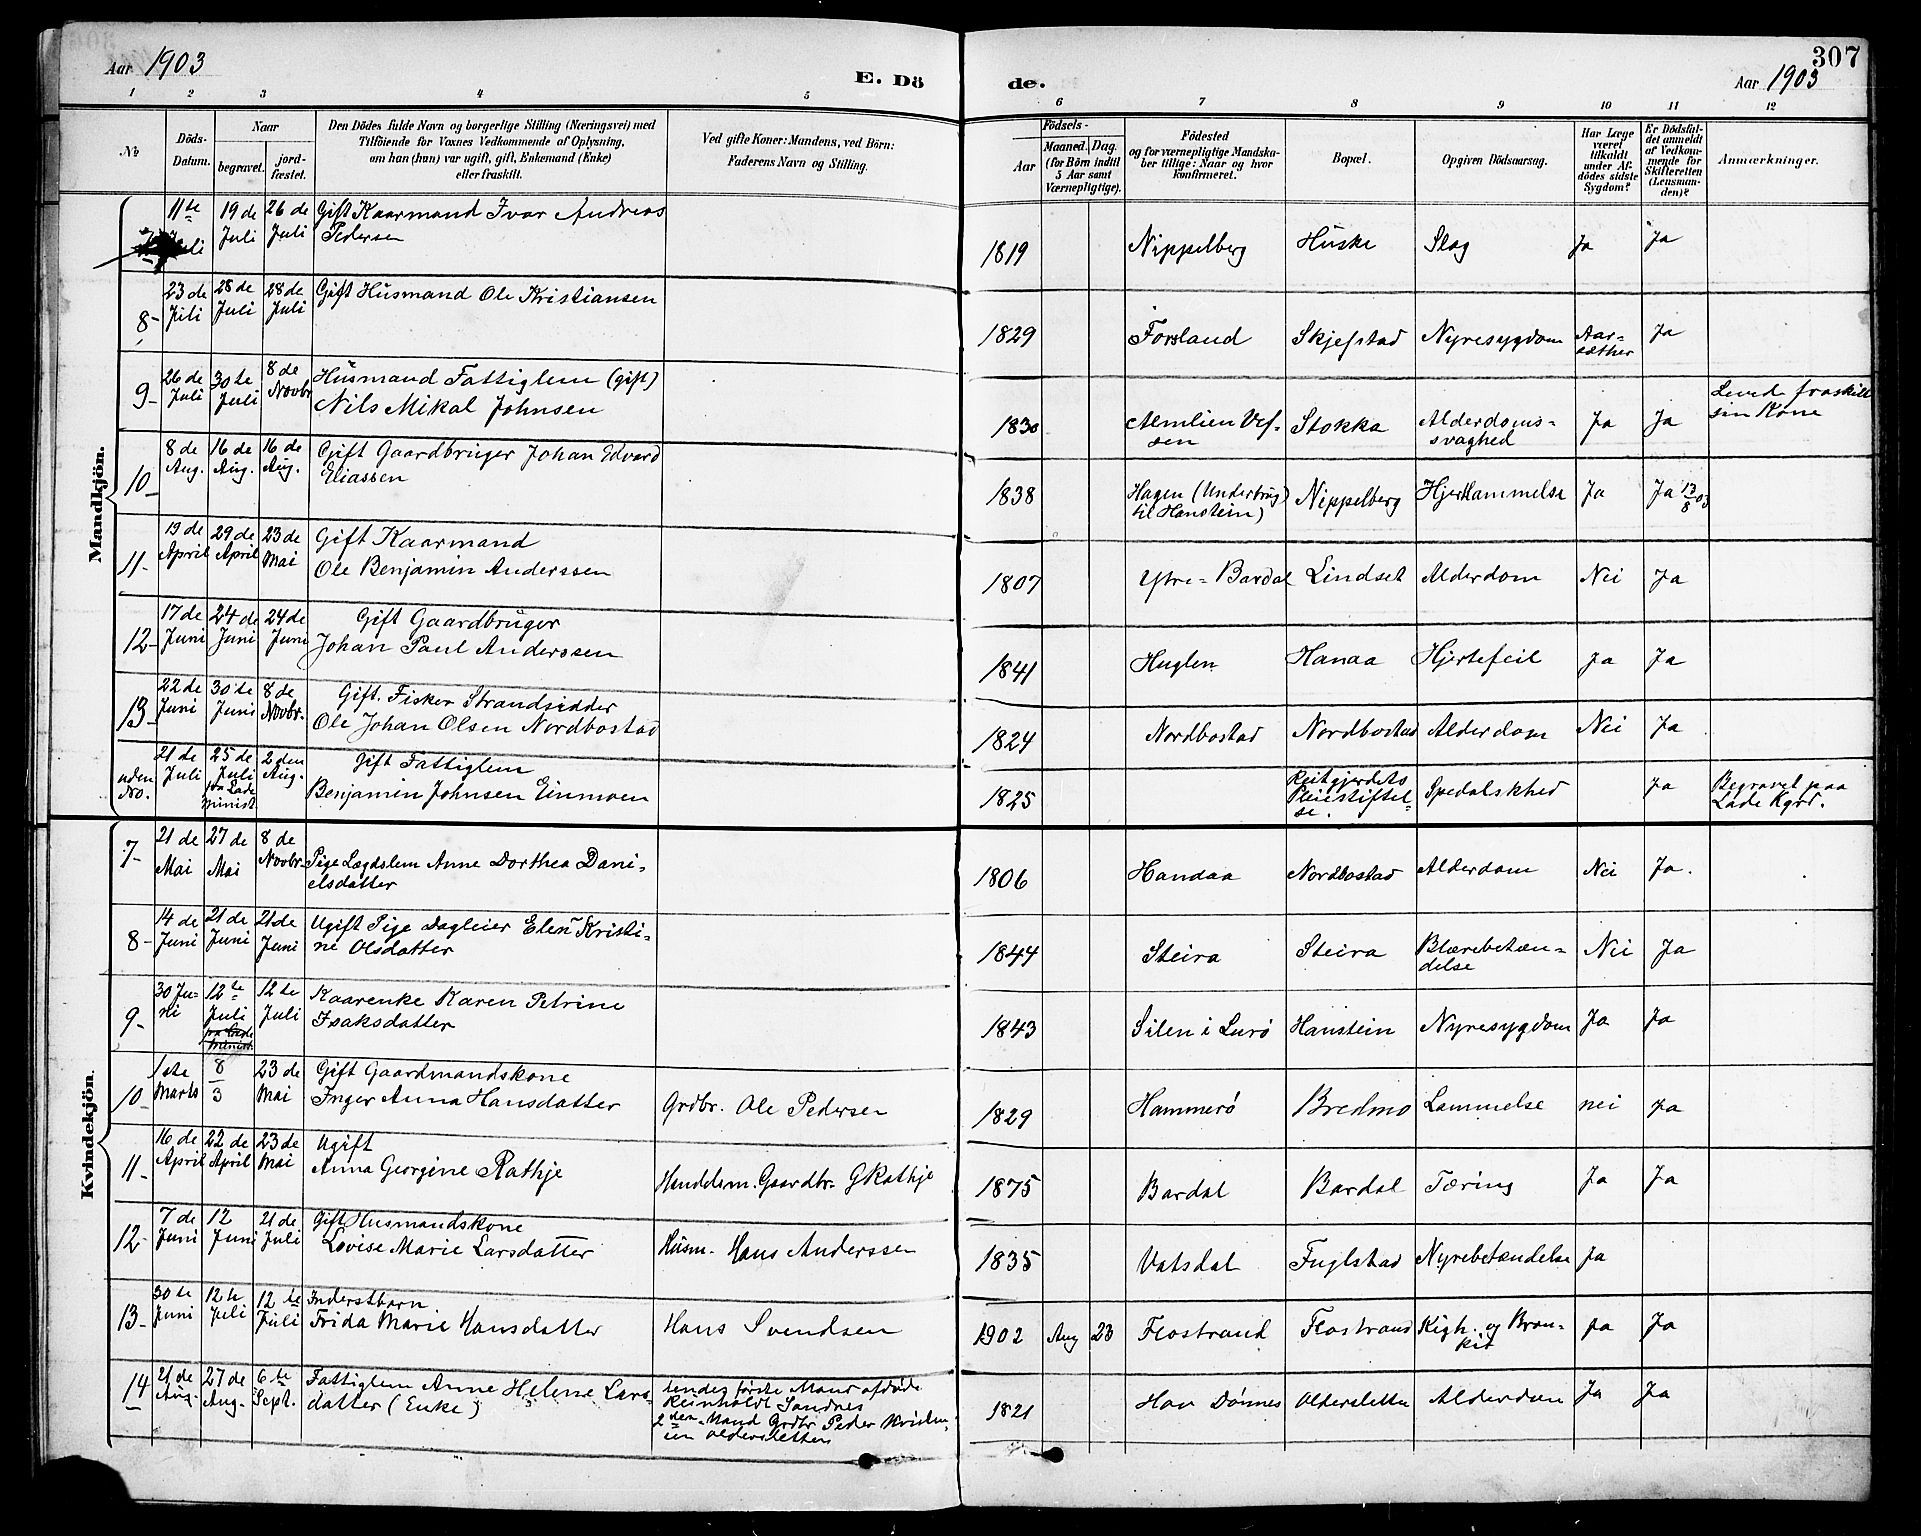 307
Aar 1903
E. Dö
de.
Aar 1903
1 2 3 4 5 6 7 8 9 10 11 12
No
Döds-
Datum.
Naar
begravet.
jord-
fæstet.
Den Dödes fulde Navn og borgerlige Stilling (Næringsvei) med
Tilföiende for Voxnes Vedkommende af Oplysning,
om han (hun) var ugift, gift, Enkemand (Enke)
eller fraskilt.
Ved gifte Koner: Mandens, ved Börn:
Faderens Navn og Stilling.
Födsels-
Aar
Maaned. Dag.
(for Börn indtil
5 Aar samt
Værnepligtige).
Födested
og for værnepligtige Mandska-
ber tillige: Naar og hvor
konfirmeret.
Bopæl.
Opgiven Dödsaarsag.
Har Læge
været
tilkaldt
under Af-
dödes sidste
Sygdom?
Er Dödsfal-
det anmeldt
af Vedkom-
mende for
Skifteretten
(Lensman-
den)?
Anmærkninger.
Mandkjön.
11te Juli 19de Juli 26de Juli Gift Kaarmand Ivar Andreas
Pedersen
1819 Nippelberg Huske Slag Ja Ja
8- 23de Juli 28de Juli 28de Juli Gift Husmand Ole Kristiansen
1829 Forsland Skjefstad Nyresygdom Aar-
sæther Ja
9- 26de Juli 30te Juli 8de Novbr Husmand Fattiglem (gift)
Nils Mikal Johnsen
1830 Almlien Vef-
sen Stokka Alderdoms-
svaghed Ja Ja Leved fraskilt
sin Kone
10- 8de Aug. 16de Aug. 16de Aug. Gift Gaardbruger Johan Edvard
Eliassen
1838 Hagen (Underbrug
til Hanstein) Nippelberg Hjertlammelse Ja Ja 13/8 03
11- 19de April 29de April 23de Mai Gift Kaarmand
Ole Benjamin Anderssen
1807 Ytre-Bardal Lindset Alderdom Nei Ja
12- 17de Juni 24de Juni 24de Juni Gift Gaardbruger
Johan Paul Anderssen
1841 Huglen Hanaa Hjertefeil Ja Ja
13- 22de Juni 30te Juni 8de Novbr. Gift. Fisker Strandsidder
Ole Johan Olsen Nordbostad
1824 Nordbostad Nordbostad Alderdom Nei Ja
uden
No. 21de Juli 25de Juli fra Lade Minist. 2den Aug. Gift Fattiglem
Benjamin Johnsen Einmoen
1825 Reitgjerdets
Pleiestiftel-
se. Spedalskhed Ja Begravet paa
Lade Kgrd.
Kvindekjön.
7- 21de Mai 27de Mai 8de Novbr. Pige Lægdslem Anne Dorthea Dani-
elsdatter
1806 Handaa Nordbostad Alderdom Nei Ja.
8- 14de Juni 21de Juni 21de Juni Ugift Pige Dagleier Elen Kristi-
ne Olsdatter
1844 Steira Steira Blærebetæn-
delse Nei Ja
9- 30 Ju-
ni 12te Juli fra Lade Minist. 12te Juli Kaarenke Karen Petrine
Isaksdatter
1843 Silen i Lurø Hanstein Nyresygdom Ja Ja
10- 1ste Marts 8/3 23de Mai Gift Gaardmandskone
Inger Anna Hansdatter Grdbr. Ole Pedersen
1829 Hammerø Bredmo Lammelse nei Ja
11- 16de April 22de April 23de Mai Ugift
Anna Georgine Rathje Handelsm. Gaardbr. G Rathje
1875 Bardal Bardal Tæring Ja Ja
12- 7de Juni 12 Juni 21de Juli Gift Husmandskone
Lovise Marie Larsdatter Husm. Hans Anderssen
1835 Vatsdal Fuglstad Nyrebetændelse Ja
13- 30te Juni 12te Juli 12te Juli Inderstbarn.
Frida Marie Hansdatter Hans Svendsen
1902 Aug 23 Flostrand Flostrand Kigh. og Bron-
kit ja Ja
14 21de Aug. 27de Aug. 6te Sept. Fattiglem Anne Helene Lars-
datter (Enke) hendes første Mand afdøde
Reinholdt Sandnes
2den Mand Grdbr Peder
Oldersletten
1821 Hov Dønnes Oldersletta Alderdom Ja Ja